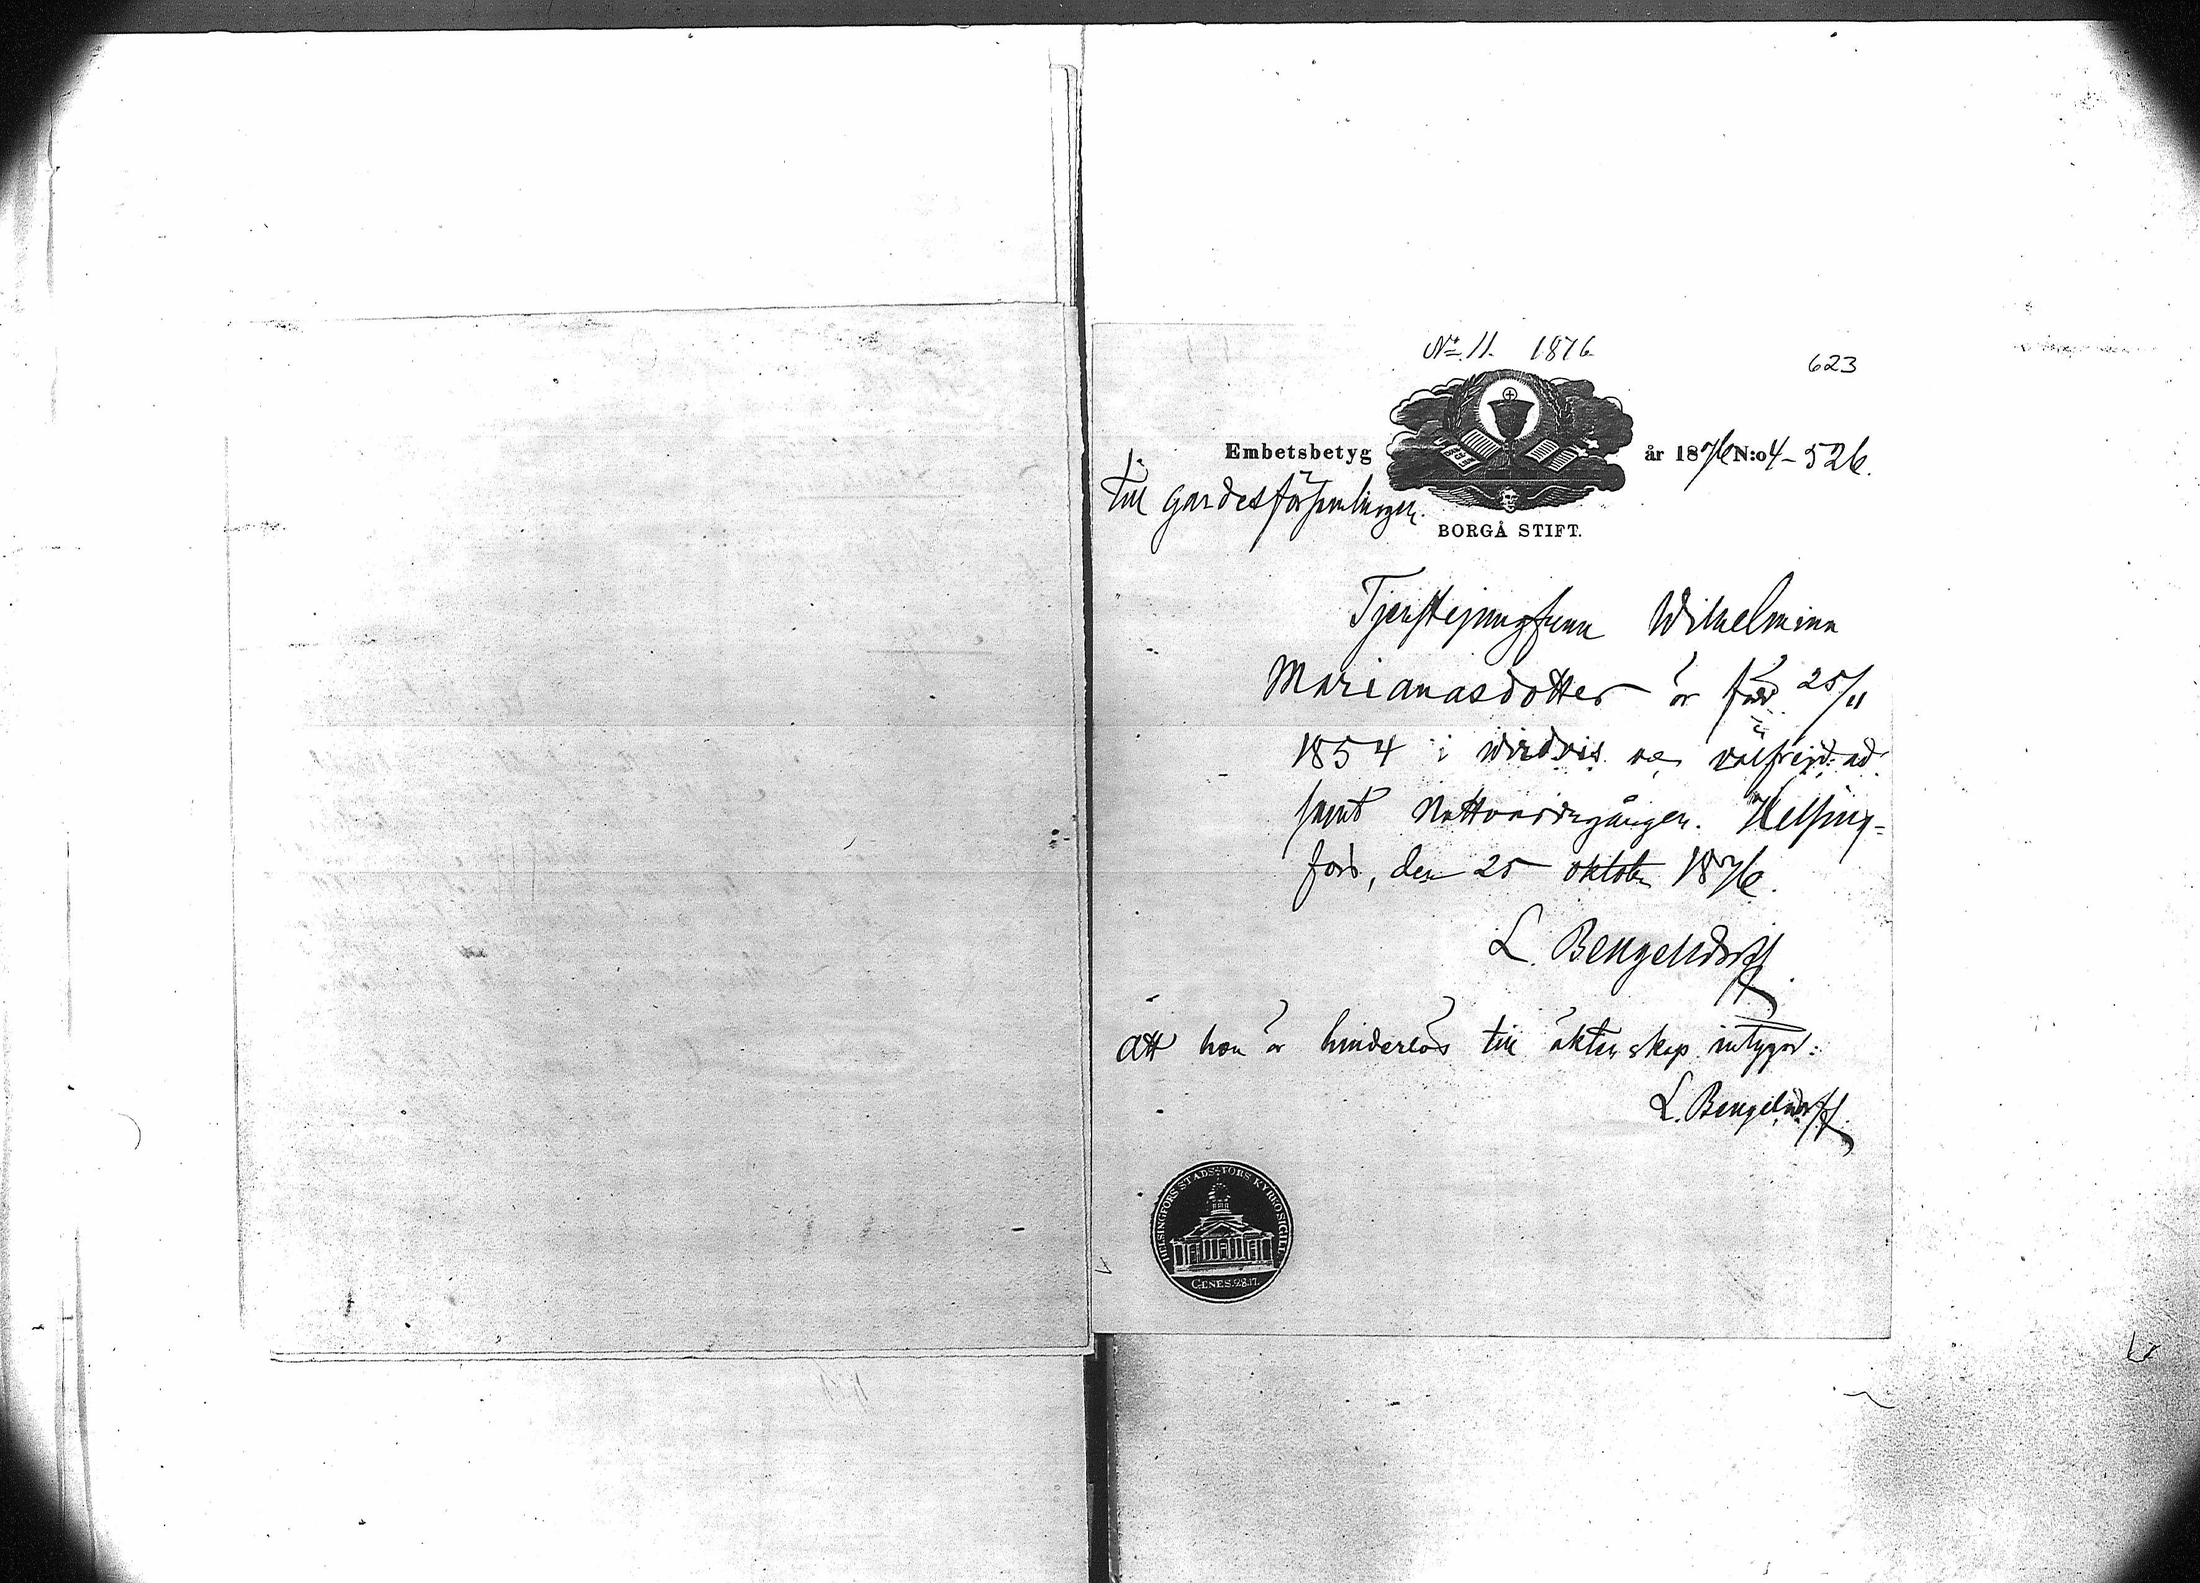 No 11. 1876.
623
Embetsbetyg år 1876 N:o 4-526.
till gardesförsamlingen.
BORGÅ STIFT.
Tjenstejungfrun Wilhelmina
Marianasdotter är född 25/11
1854 i Wichtis välfrejdad
samt Nattvardsgången. Helsing-
fors, den 25 oktober 1876.
L. Bengelsdorff
Att hon är hinderlös till äktenskap intygar:
L. Bengelsdorff.
HELSINGFORS STADSFÖRS KYRKOSIGILL
GENES. 28.17.